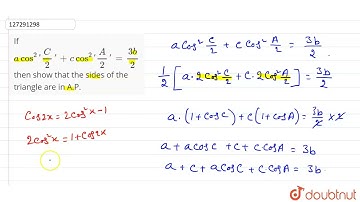 127291298
If
a cos² C/2 + c cos² A/2 = 3b/2
then show that the sides of the
triangle are in A.P.
Cos2x = 2cos²x - 1
2cos²x = 1 + cos2x
a cos² C/2 + c cos² A/2 = 3b/2
1/2 [a · 2cos² C/2 + c · 2cos² A/2] = 3b/2
a · (1 + cosC) + c (1 + cosA) = 3b/2 × 2
a + a cosC + c + c cosA = 3b
a + c + a cosC + c cosA = 3b
doubtnut